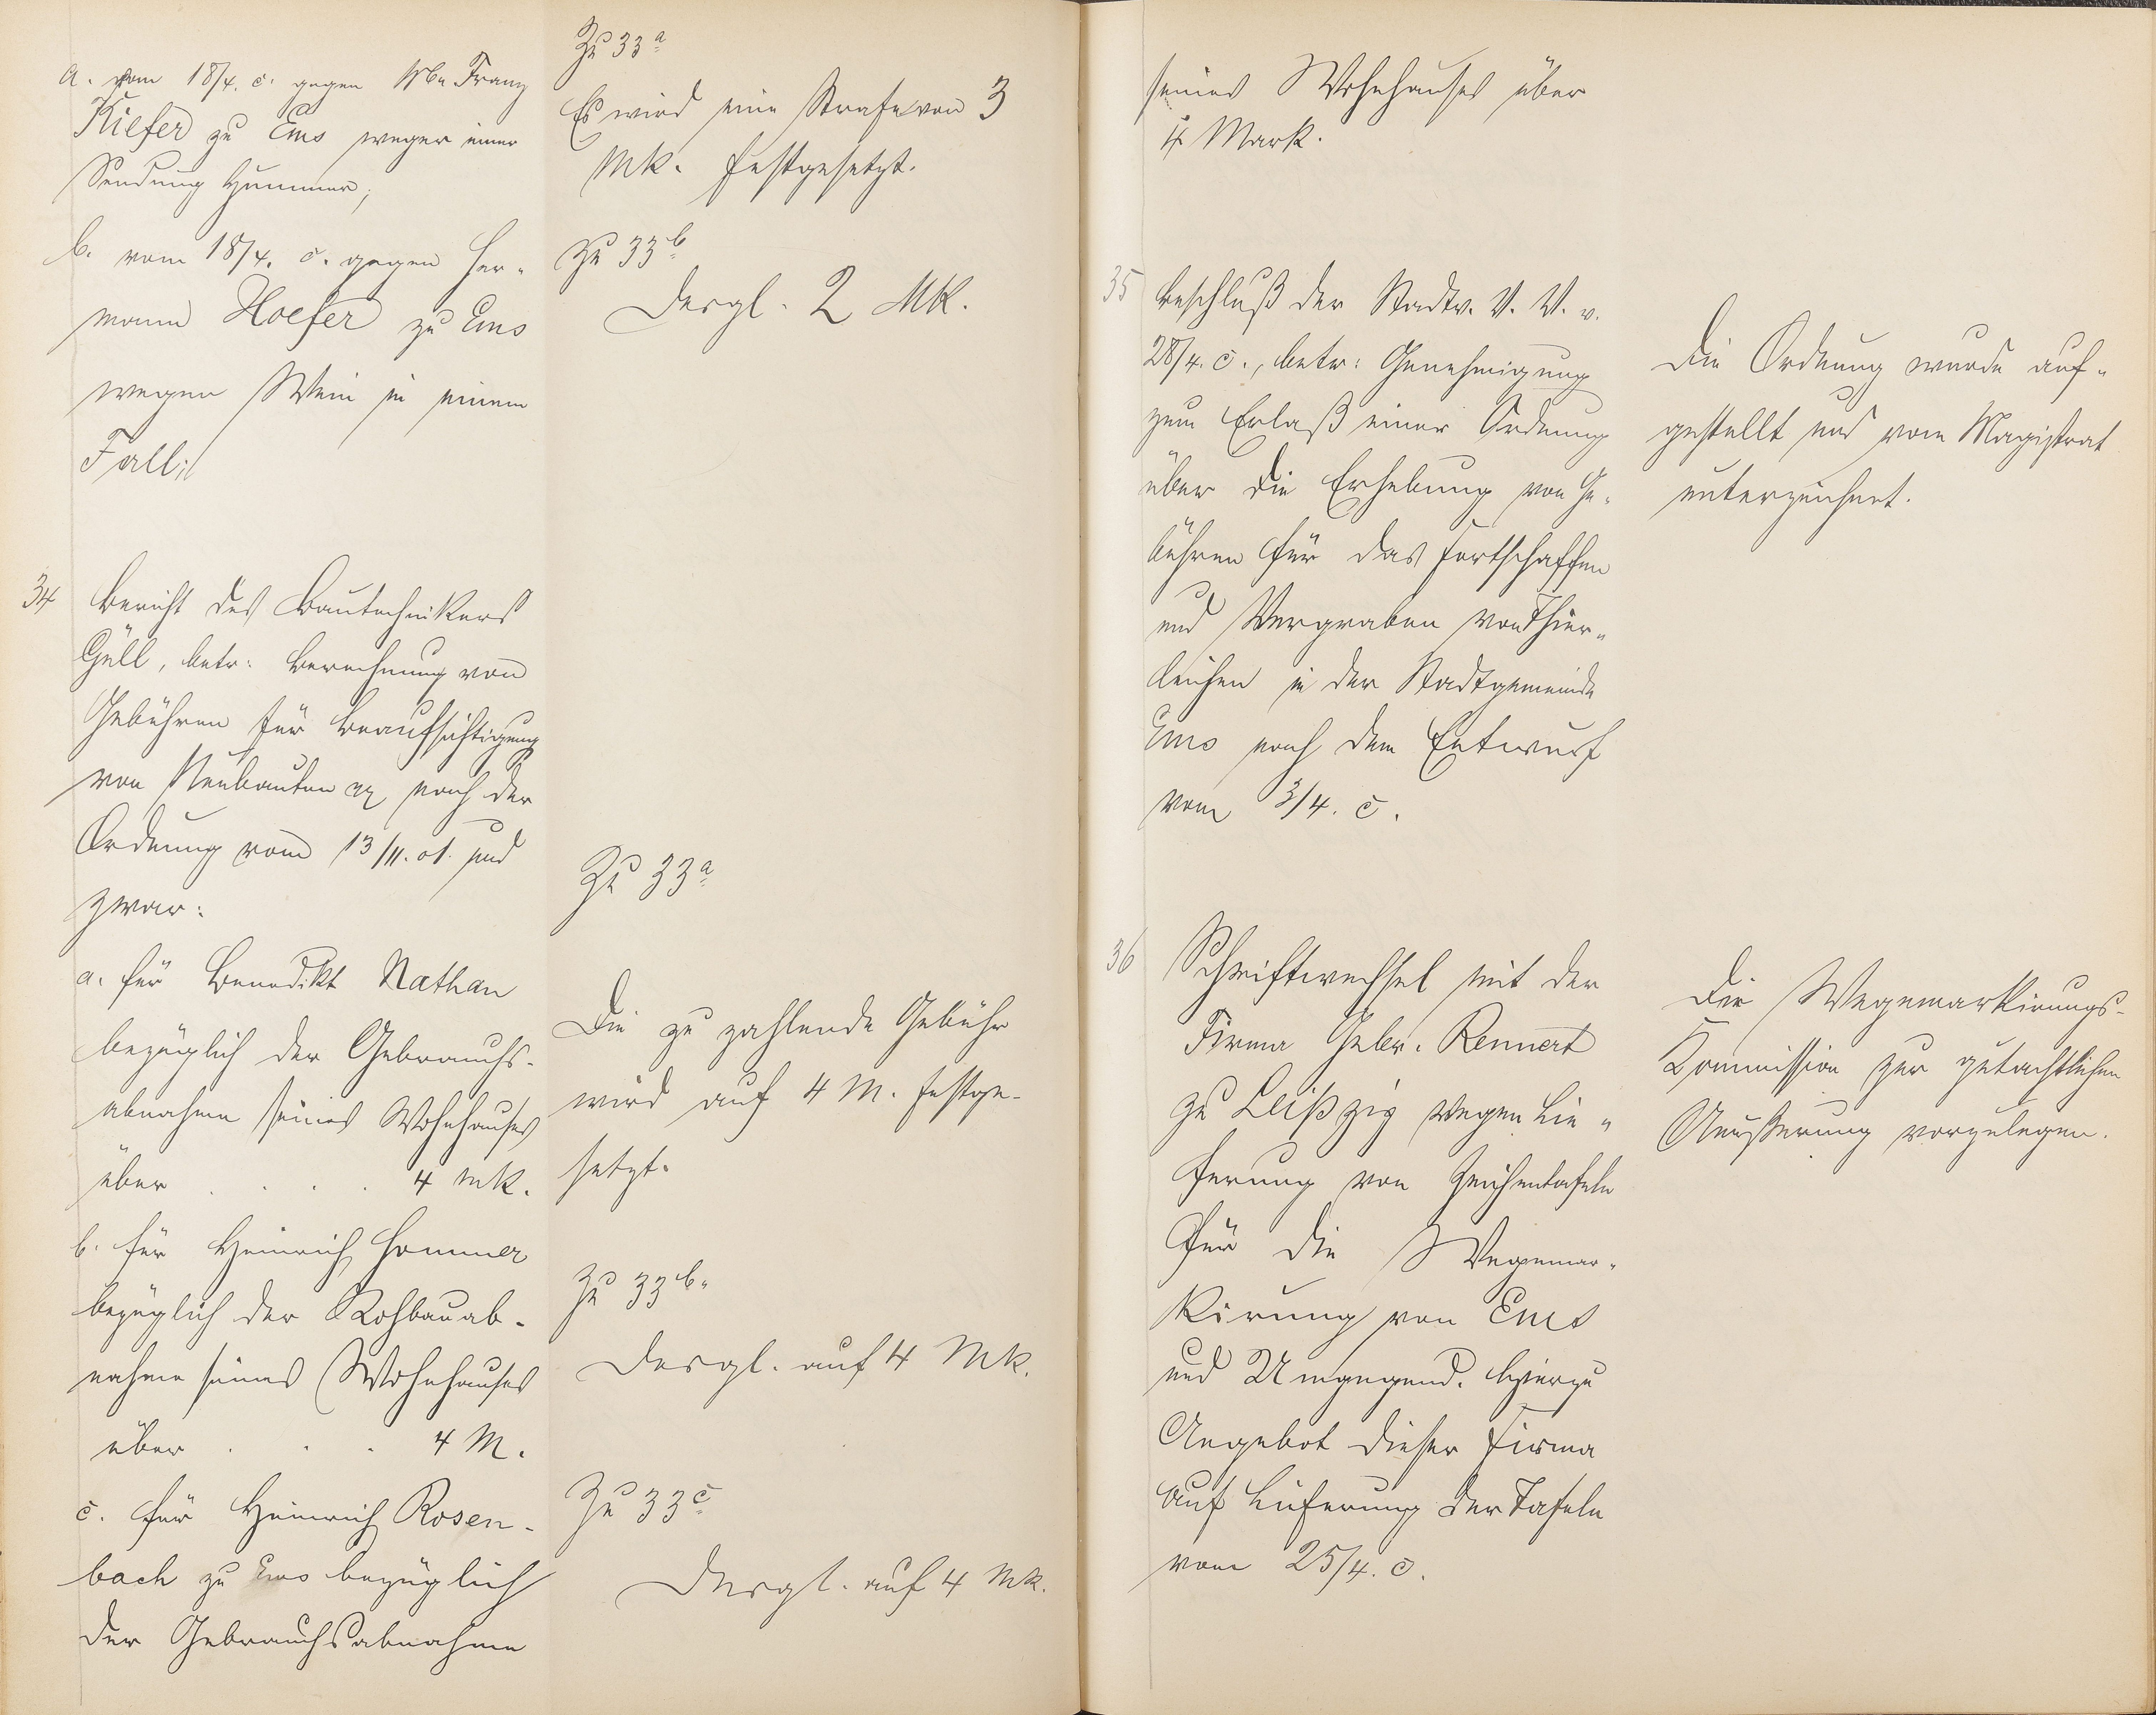 a. vom 18/4. c. gegen Franz
Kiefer zu Ems wegen einer
Sendung Hummer;
b. vom 18/4. c. gegen Her-
mann Hoefer zu Ems
wegen Wein in einem
Fall;
34 Bericht des Bautechnikers
Güll, betr: Berechnung von
Gebühren für Beaufsichtigung
von Neubauten nach der
Ordnung vom 13/11. 01. und
zwar:
a. für Benedikt Nathan
bezüglich der Gebrauchs-
abnahme seines Wohnhauses
über . . . . 4 Mk.
b. für Heinrich Hammer
bezüglich der Rohbauab-
nahme seines Wohnhauses
über . . . 4 M.
c. für Heinrich Rosen-
bach zu Ems bezüglich
der Gebrauchsabnahme
Zu 33a
Es wird eine Strafe von 3
Mk. festgesetzt.
Zu 33b
Desgl. 2 Mk.
Zu 33a
Die zu zahlende Gebühr
wird auf 4 M. festge-
setzt.
Zu 33b.
Desgl. auf 4 Mk.
Zu 33c
Desgl. auf 4 Mk.
seines Wohnhauses über
4 Mark.
35 Beschluß der Stadtv. V. V. v.
28/4. c., betr: Genehmigung
zum Erlaß einer Ordnung
über die Erhebung von Ge-
bühren für das Fortschaffen
und Vergraben von Thier-
leichen in der Stadtgemeinde
Ems nach dem Entwurf
vom 3/4. c.
Die Ordnung wurde auf-
gestellt und vom Magistrat
unterzeichnet.
36 Schriftwechsel mit der
Firma Gebr. Rennert
zu Leißzig wegen Lie-
ferung von Zeichentafeln
für die Wegemar-
kirung von Ems
und Umgegend. Hierzu
Angebot dieser Firma
auf Lieferung der Tafeln
vom 25/4. c.
Der Wegemarkirungs-
Kommission zur gutachtlichen
Aeußerung vorzulegen.